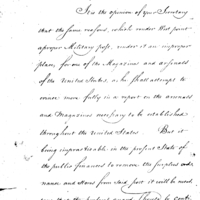 It is the opinion of your Secretary
that the same reasons, which render West point
a proper Military post, render it an improper
place, for one of the Magazines and arsenals
of the United States, as he shall attempt to
evince more fully in a report on the arsenals
and Magazines necessary to be established
throughout the United States But it
being impracticable in the present State of
the public finances to remove the surplus ord-
nance and stores from said post it will be neces-